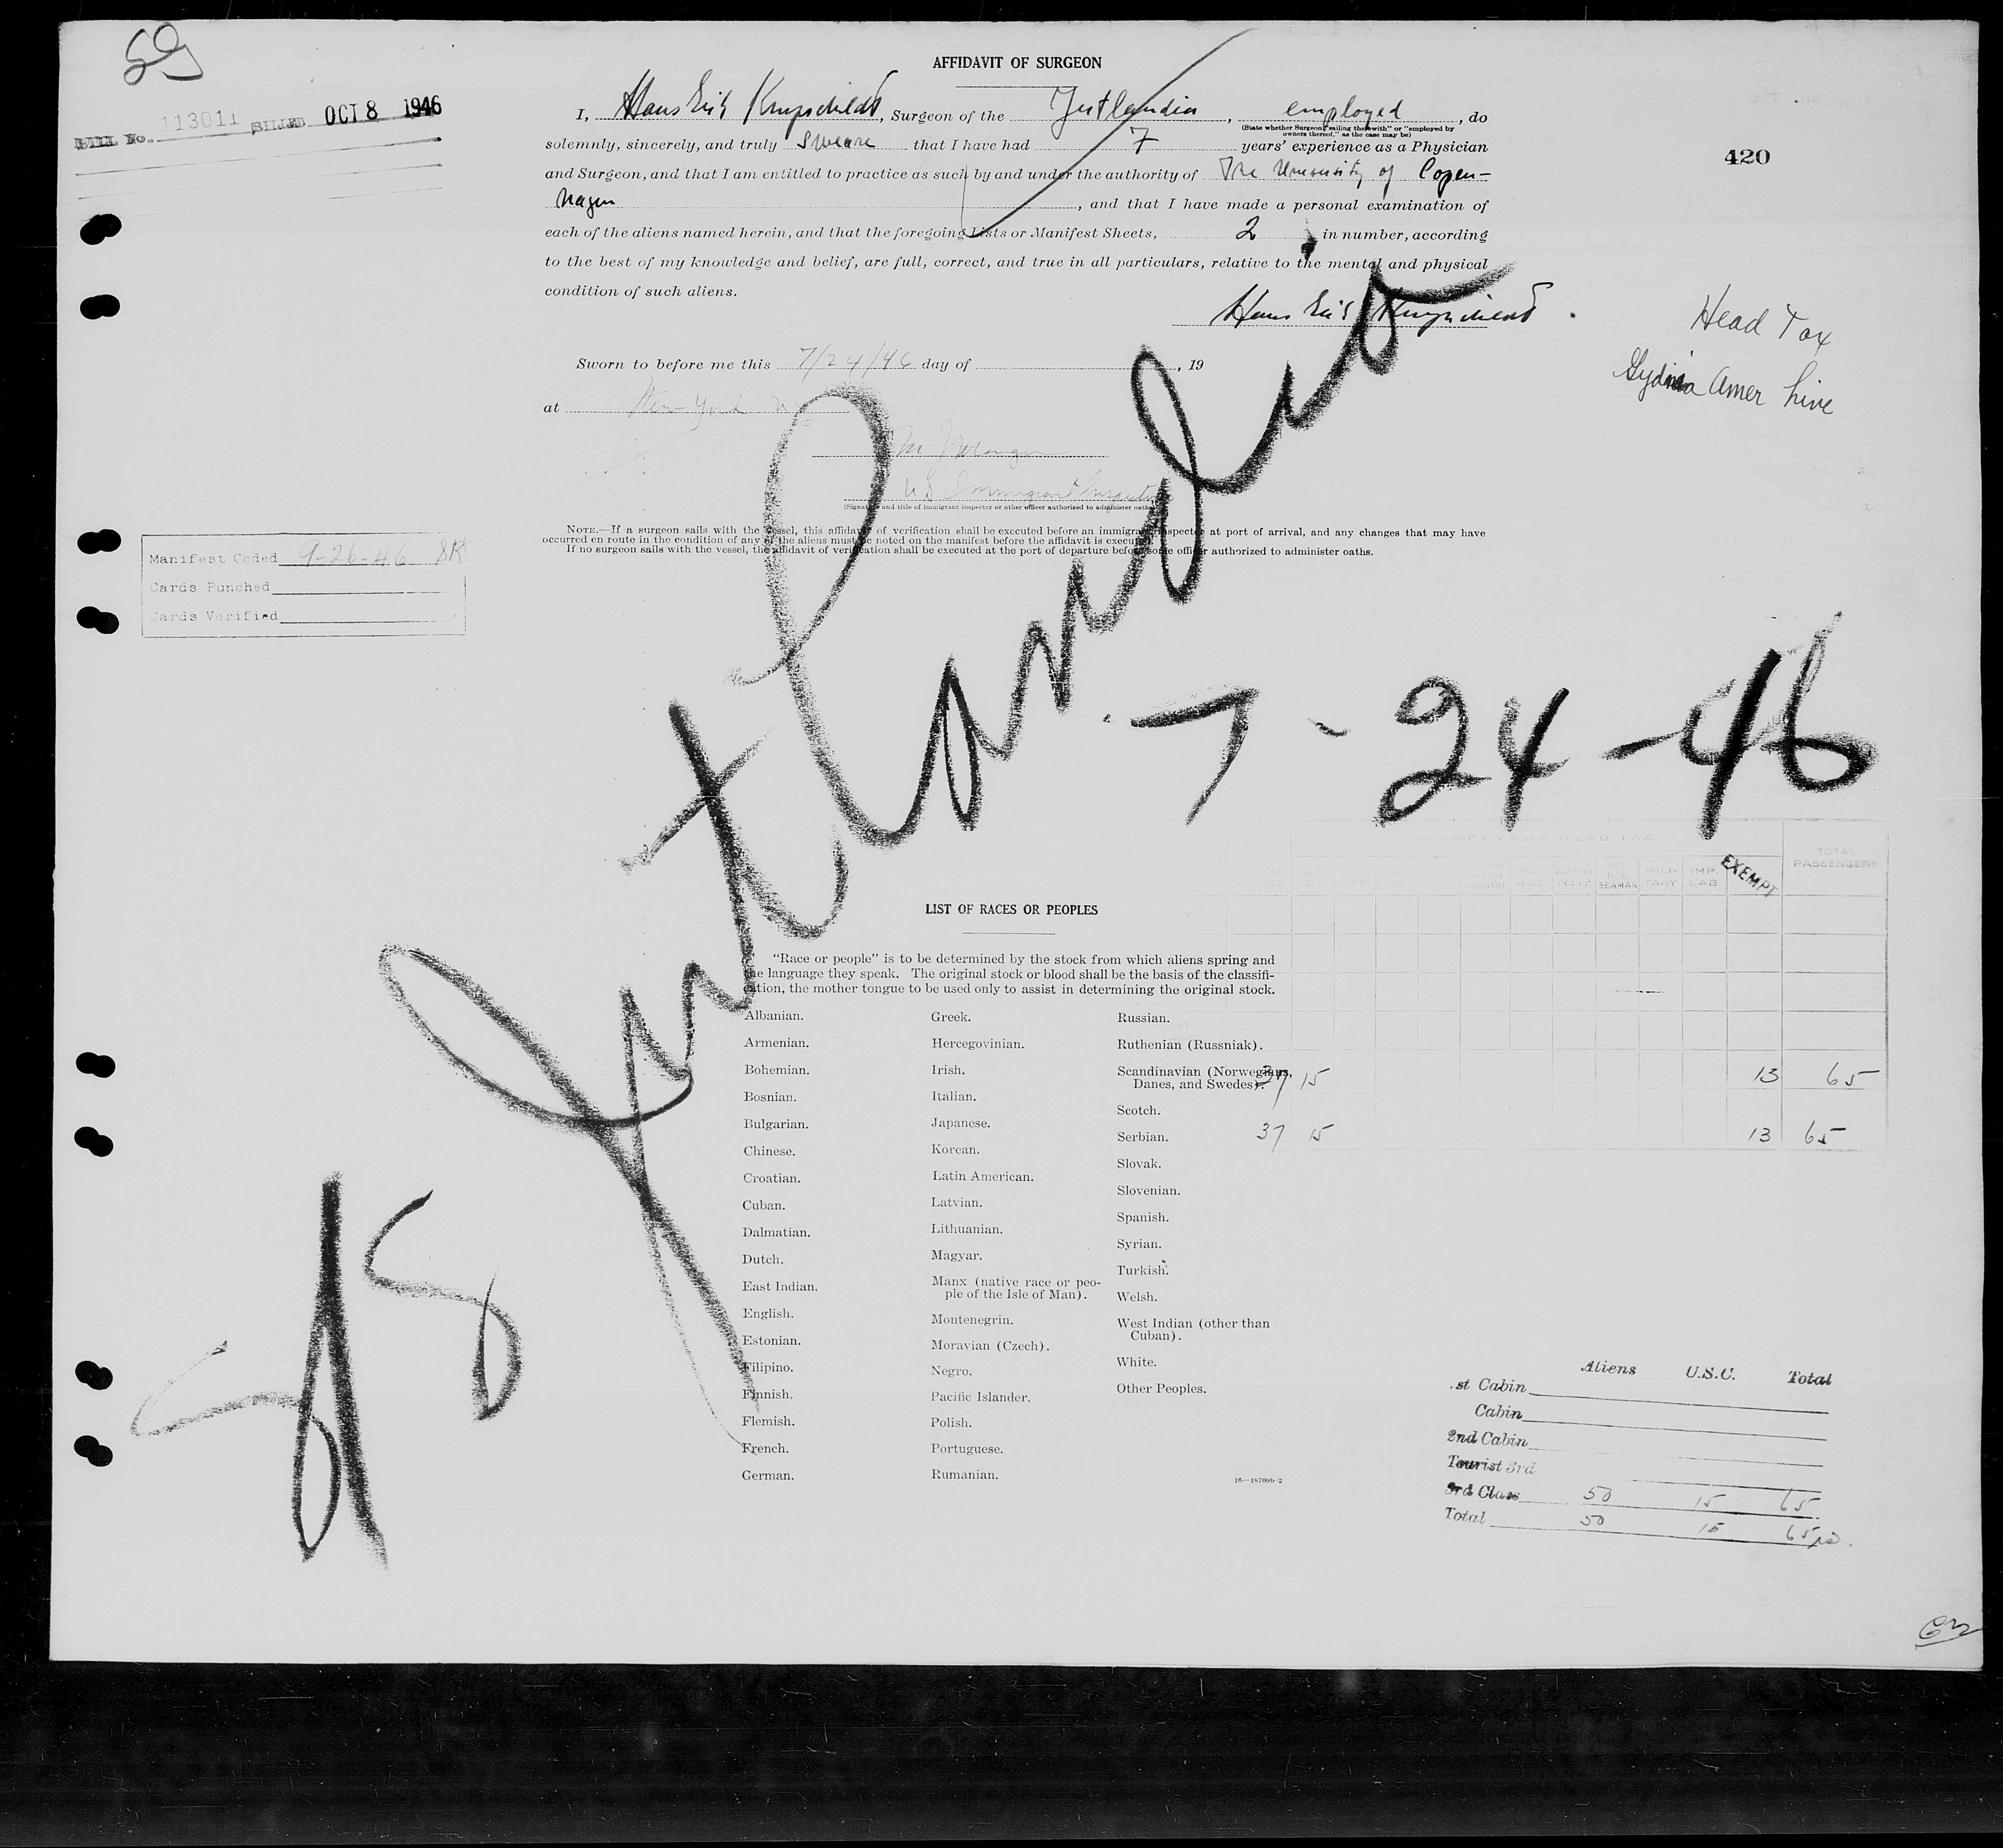 59
BILL No. 113011 BILLED OCT 8 1946
420
AFFIDAVIT OF SURGEON
I, Hans Erik , Surgeon of the Jutlandia , employed , do
(State whether Surgeon "sailing therewith" or "employed by owners thereof," as the case may be)
solemnly, sincerely, and truly swear that I have had 7 years' experience as a Physician
and Surgeon, and that I am entitled to practice as such by and under the authority of The University of Copen-
hagen , and that I have made a personal examination of
each of the aliens named herein, and that the foregoing Lists or Manifest Sheets, 2 , in number, according
to the best of my knowledge and belief, are full, correct, and true in all particulars, relative to the mental and physical
condition of such aliens.
Hans Erik
Head Tax
Amer Line
Sworn to before me this 7/24/46 day of , 19
at New York N.Y.
U.S. Immigrant Inspector
(Signature and title of immigrant inspector or other officer authorized to administer oaths)
NOTE.—If a surgeon sails with the vessel, this affidavit of verification shall be executed before an immigrant inspector at port of arrival, and any changes that may have
occurred en route in the condition of any of the aliens must be noted on the manifest before the affidavit is executed.
If no surgeon sails with the vessel, the affidavit of verification shall be executed at the port of departure before some officer authorized to administer oaths.
Manifest Coded 9-26-46 SR
Cards Punched
Cards Verified
Jutlandia
7-24-46
EXEMPT FROM HEAD TAX
SEAMAN MILI-TARY IMP. LAB. EXEMPT TOTAL PASSENGERS
37 15 13 65
37 15 13 65
LIST OF RACES OR PEOPLES
"Race or people" is to be determined by the stock from which aliens spring and
the language they speak. The original stock or blood shall be the basis of the classifi-
cation, the mother tongue to be used only to assist in determining the original stock.
Albanian.
Armenian.
Bohemian.
Bosnian.
Bulgarian.
Chinese.
Croatian.
Cuban.
Dalmatian.
Dutch.
East Indian.
English.
Estonian.
Filipino.
Finnish.
Flemish.
French.
German.
Greek.
Hercegovinian.
Irish.
Italian.
Japanese.
Korean.
Latin American.
Latvian.
Lithuanian.
Magyar.
Manx (native race or peo-
ple of the Isle of Man).
Montenegrin.
Moravian (Czech).
Negro.
Pacific Islander.
Polish.
Portuguese.
Rumanian.
Russian.
Ruthenian (Russniak).
Scandinavian (Norwegians,
Danes, and Swedes).
Scotch.
Serbian.
Slovak.
Slovenian.
Spanish.
Syrian.
Turkish.
Welsh.
West Indian (other than
Cuban).
White.
Other Peoples.
16—18709b-2
Aliens U.S.C. Total
st Cabin
Cabin
2nd Cabin
Tourist 3rd
3rd Class 50 15 65
Total 50 15 65